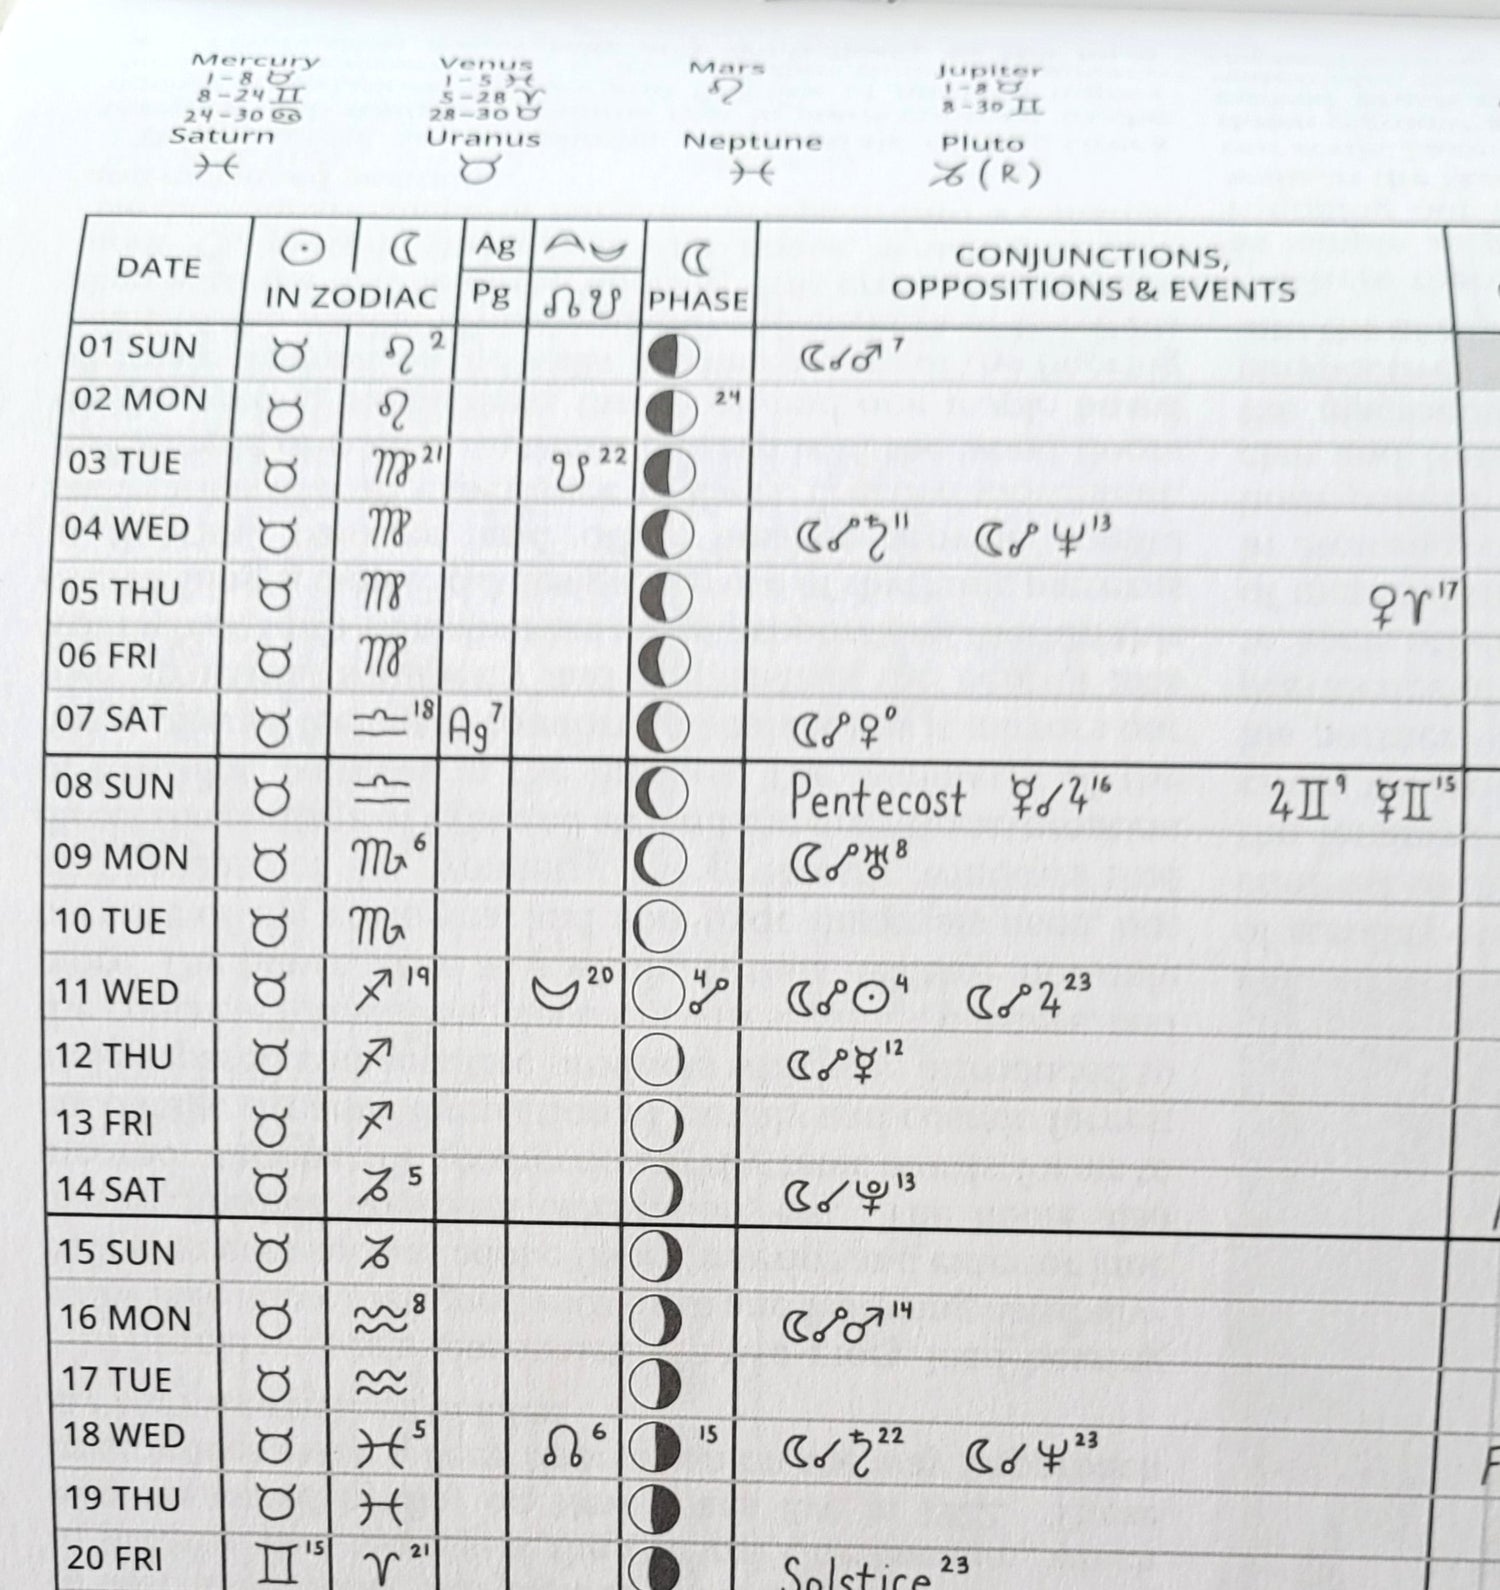 Mercury Venus Mars Jupiter
1-8 ♉ 1-5 ♓ ♌ 1-8 ♉
8-24 ♊ 5-28 ♈ 8-30 ♊
24-30 ♋ 28-30 ♉
Saturn Uranus Neptune Pluto
♓ ♉ ♓ ♑(R)
DATE ☉ ☾ IN ZODIAC Ag Pg ☊☋ ☾ PHASE CONJUNCTIONS, OPPOSITIONS & EVENTS
01 SUN ♉ ♌2 ☾☌♂7
02 MON ♉ ♌ 24
03 TUE ♉ ♍21 ☋22
04 WED ♉ ♍ ☾☍♄11 ☾☍♆13
05 THU ♉ ♍ ♀♈17
06 FRI ♉ ♍
07 SAT ♉ ♎18 Ag7 ☾☍♀0
08 SUN ♉ ♎ Pentecost ☿☌♃16 ♃♊9 ☿♊15
09 MON ♉ ♏6 ☾☍♅8
10 TUE ♉ ♏
11 WED ♉ ♐19 20 4☍ ☾☍☉4 ☾☍♃23
12 THU ♉ ♐ ☾☍☿12
13 FRI ♉ ♐
14 SAT ♉ ♑5 ☾☌♇13
15 SUN ♉ ♑
16 MON ♉ ♒8 ☾☍♂14
17 TUE ♉ ♒
18 WED ♉ ♓5 ☊6 15 ☾☌♄22 ☾☌♆23
19 THU ♉ ♓
20 FRI ♊15 ♈21 Solstice23